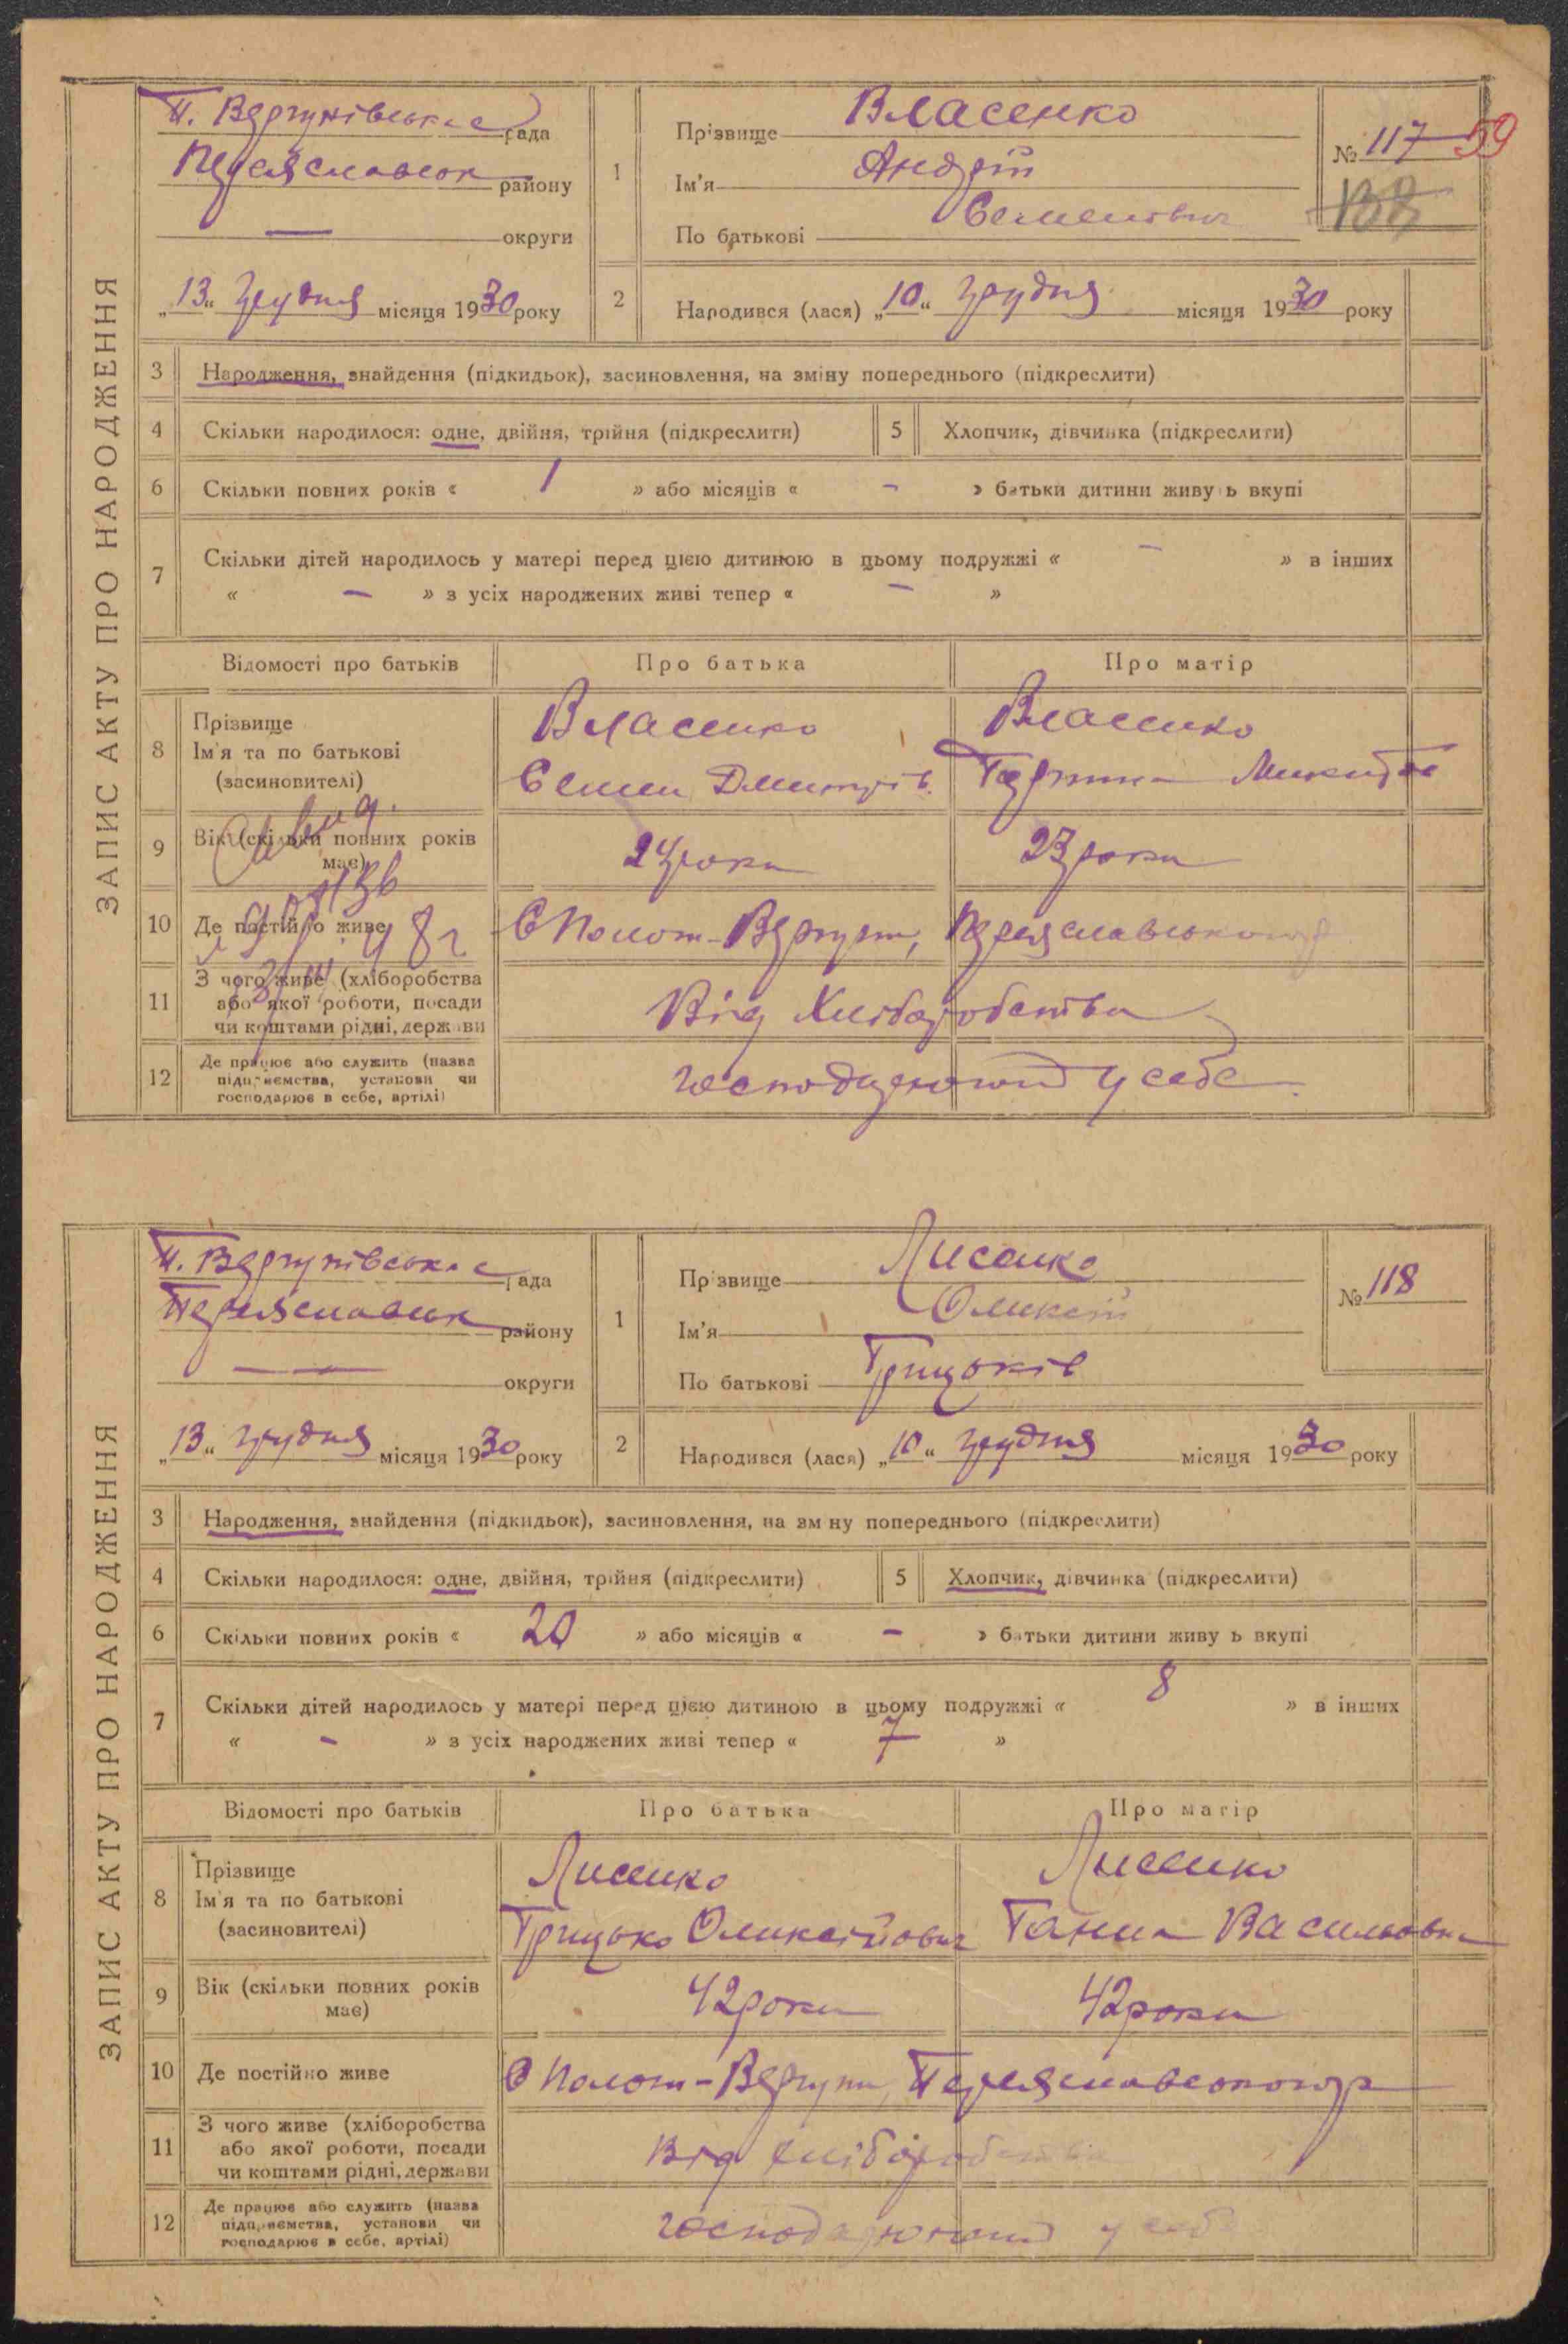 ЗАПИС АКТУ ПРО НАРОДЖЕННЯ
П. Вергунівська рада
Переяславськ району
— округи
„13“ грудня місяця 1930 року
1
Прізвище Власенко
Ім'я Андрій
По батькові Семенович
№ 117 59
2
Народився (лася) „10“ грудня місяця 1930 року
3 Народження, знайдення (підкидьок), засиновлення, на зміну попереднього (підкреслити)
4 Скільки народилося: одне, двійня, трійня (підкреслити) 5 Хлопчик, дівчинка (підкреслити)
6 Скільки повних років « 1 » або місяців « - » батьки дитини живуть вкупі
7 Скільки дітей народилось у матері перед цією дитиною в цьому подружжі « — » в інших
« — » з усіх народжених живі тепер « — »
Відомості про батьків Про батька Про матір
8 Прізвище
Ім'я та по батькові
(засновителі)
Власенко Власенко
Семен Дмитрів Микитов
9 Вік (скільки повних років
має)
24 роки 23 роки
10 Де постійно живе
С Полог-Вергун, Переяславського р
11 З чого живе (хліборобства
або якої роботи, посади
чи коштами рідні, держави
Від Хліборобства
12 Де працює або служить (назва
підприємства, установи чи
господарює в себе, артілі)
господарюють у себе
ЗАПИС АКТУ ПРО НАРОДЖЕННЯ
П. Вергунівська рада
Переяславськ району
— округи
„13“ грудня місяця 1930 року
1
Прізвище Лисенко
Ім'я Олексій
По батькові Грицьків
№ 118
2
Народився (лася) „10“ грудня місяця 1930 року
3 Народження, знайдення (підкидьок), засиновлення, на зміну попереднього (підкреслити)
4 Скільки народилося: одне, двійня, трійня (підкреслити) 5 Хлопчик, дівчинка (підкреслити)
6 Скільки повних років « 20 » або місяців « - » батьки дитини живуть вкупі
7 Скільки дітей народилось у матері перед цією дитиною в цьому подружжі « 8 » в інших
« - » з усіх народжених живі тепер « 7 »
Відомості про батьків Про батька Про матір
8 Прізвище
Ім'я та по батькові
(засиновителі)
Лисенко Лисенко
Грицько Олексійович Ганна Васильовна
9 Вік (скільки повних років
має)
42 роки 42 роки
10 Де постійно живе
С Полог-Вергуни, Переяславського р
11 З чого живе (хліборобства
або якої роботи, посади
чи коштами рідні, держави
Від хліборобства
12 Де працює або служить (назва
підприємства, установи чи
господарює в себе, артілі)
господарюють у себе